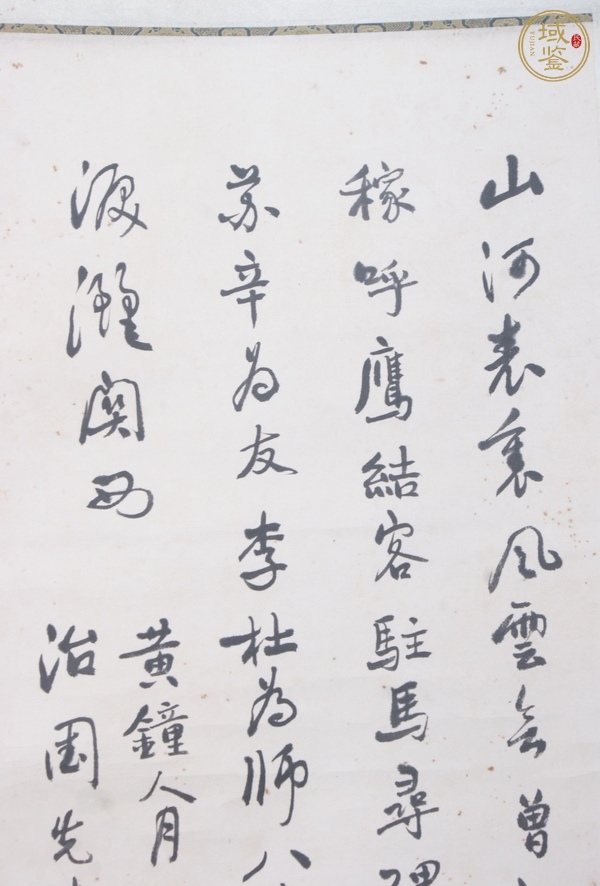 山河表裏風雲會曾
稼呼鷹結客駐馬尋碑
蘇辛為友李杜為師八
淚灑關西
黃鐘人月
治國先
域鑒
YUJIAN